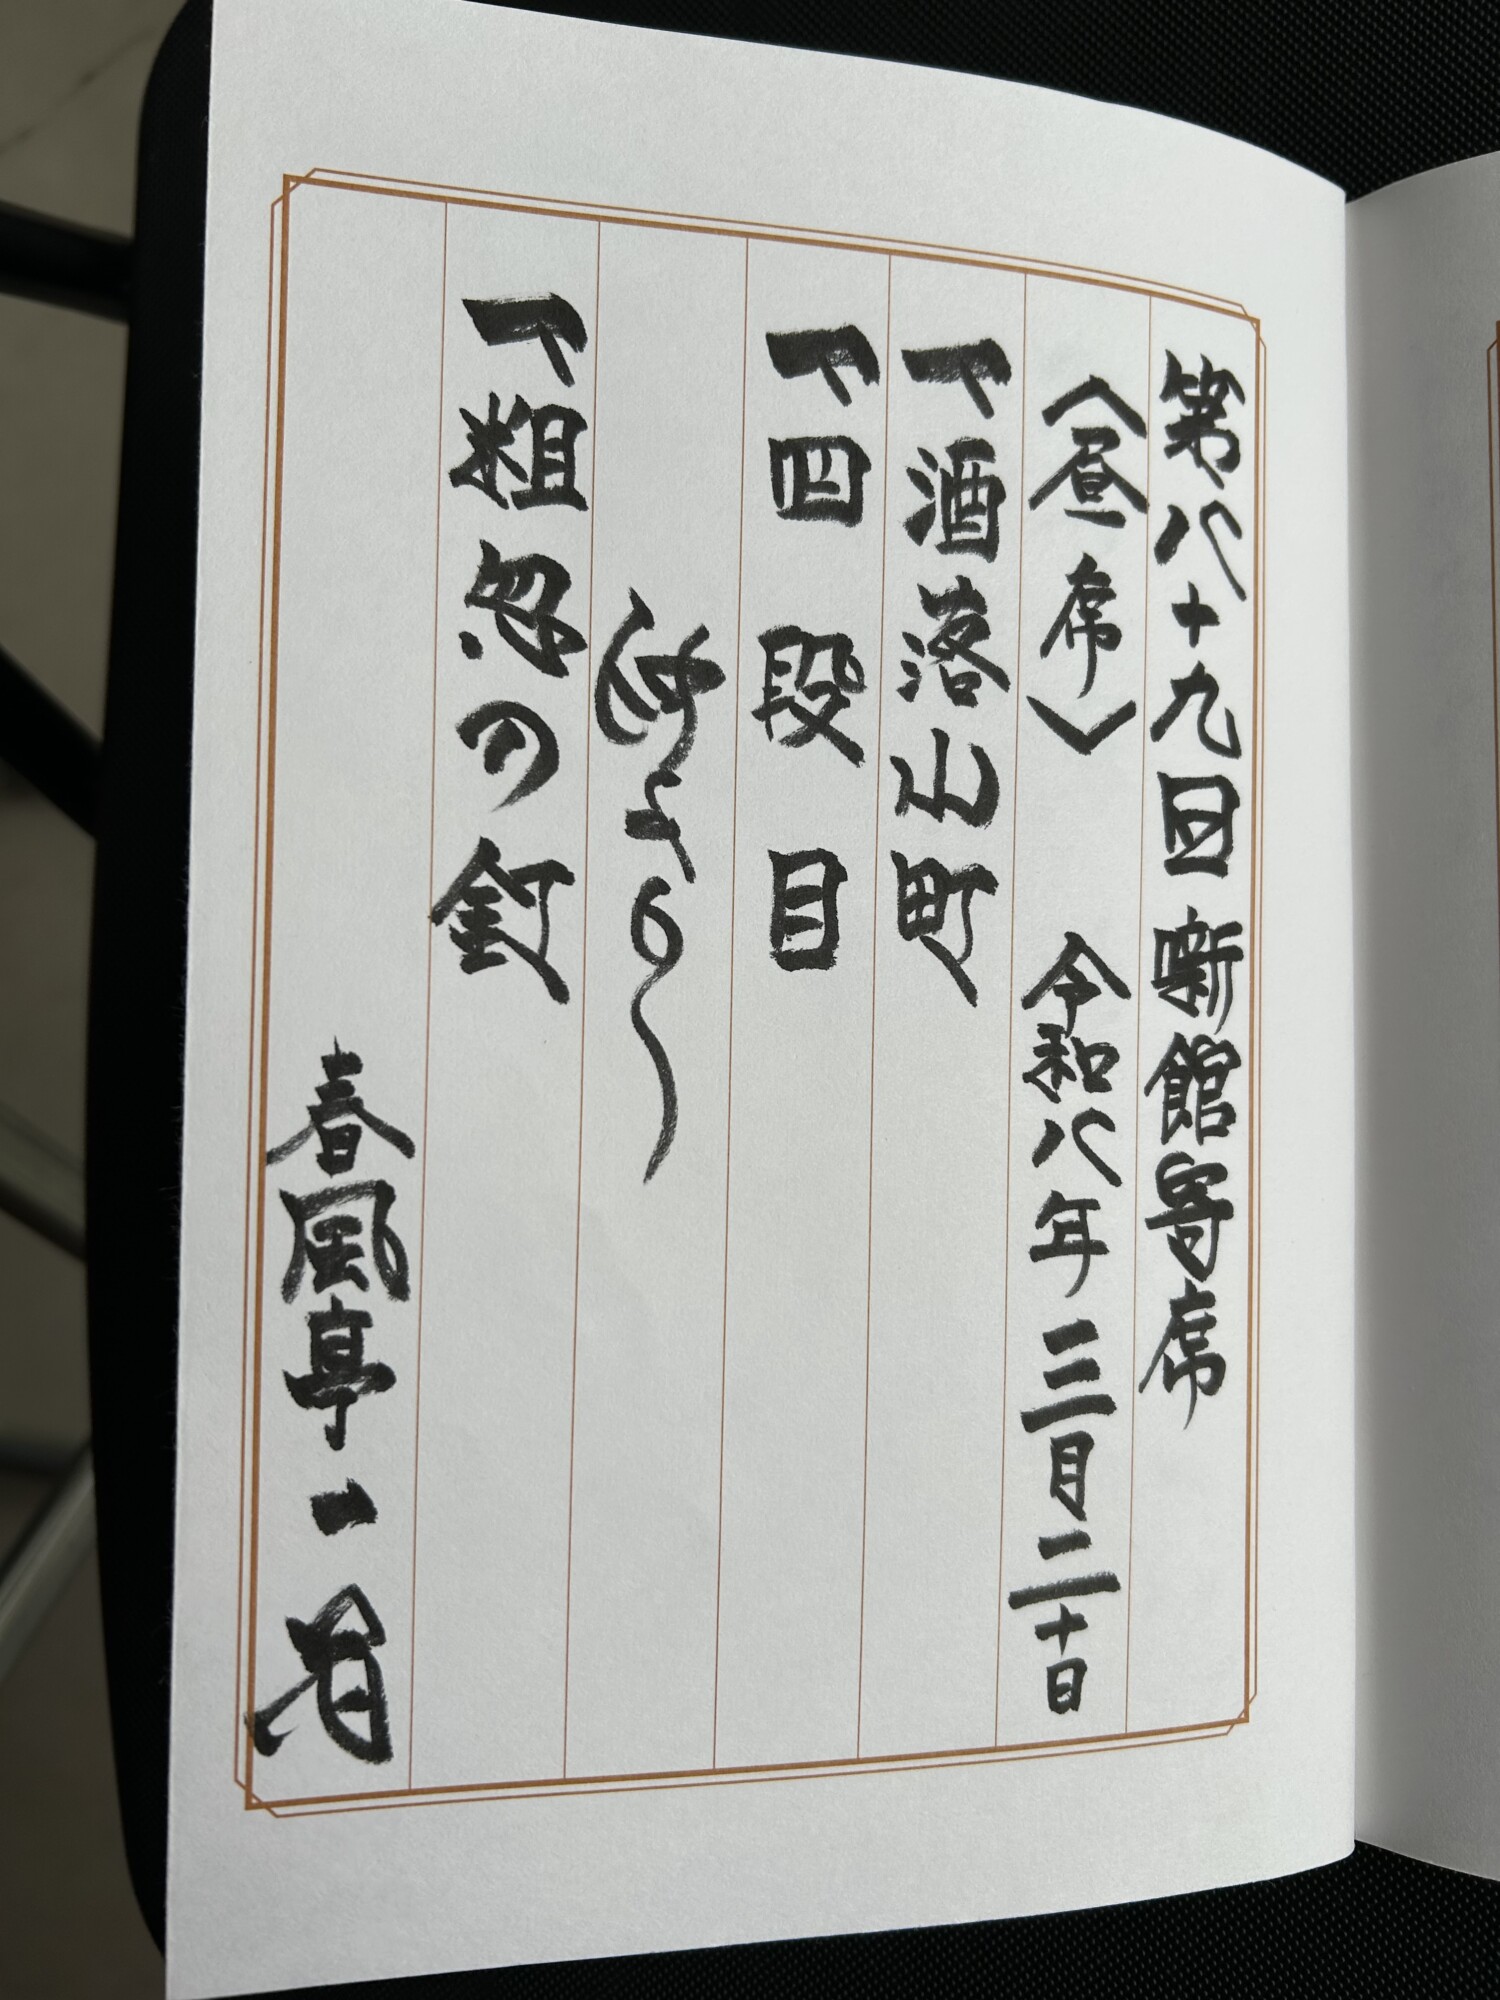 第八十九回噺館寄席
〈昼席〉 令和八年三月二十日
一、酒落小町
一、四段目
一、粗忽の釘
春風亭一